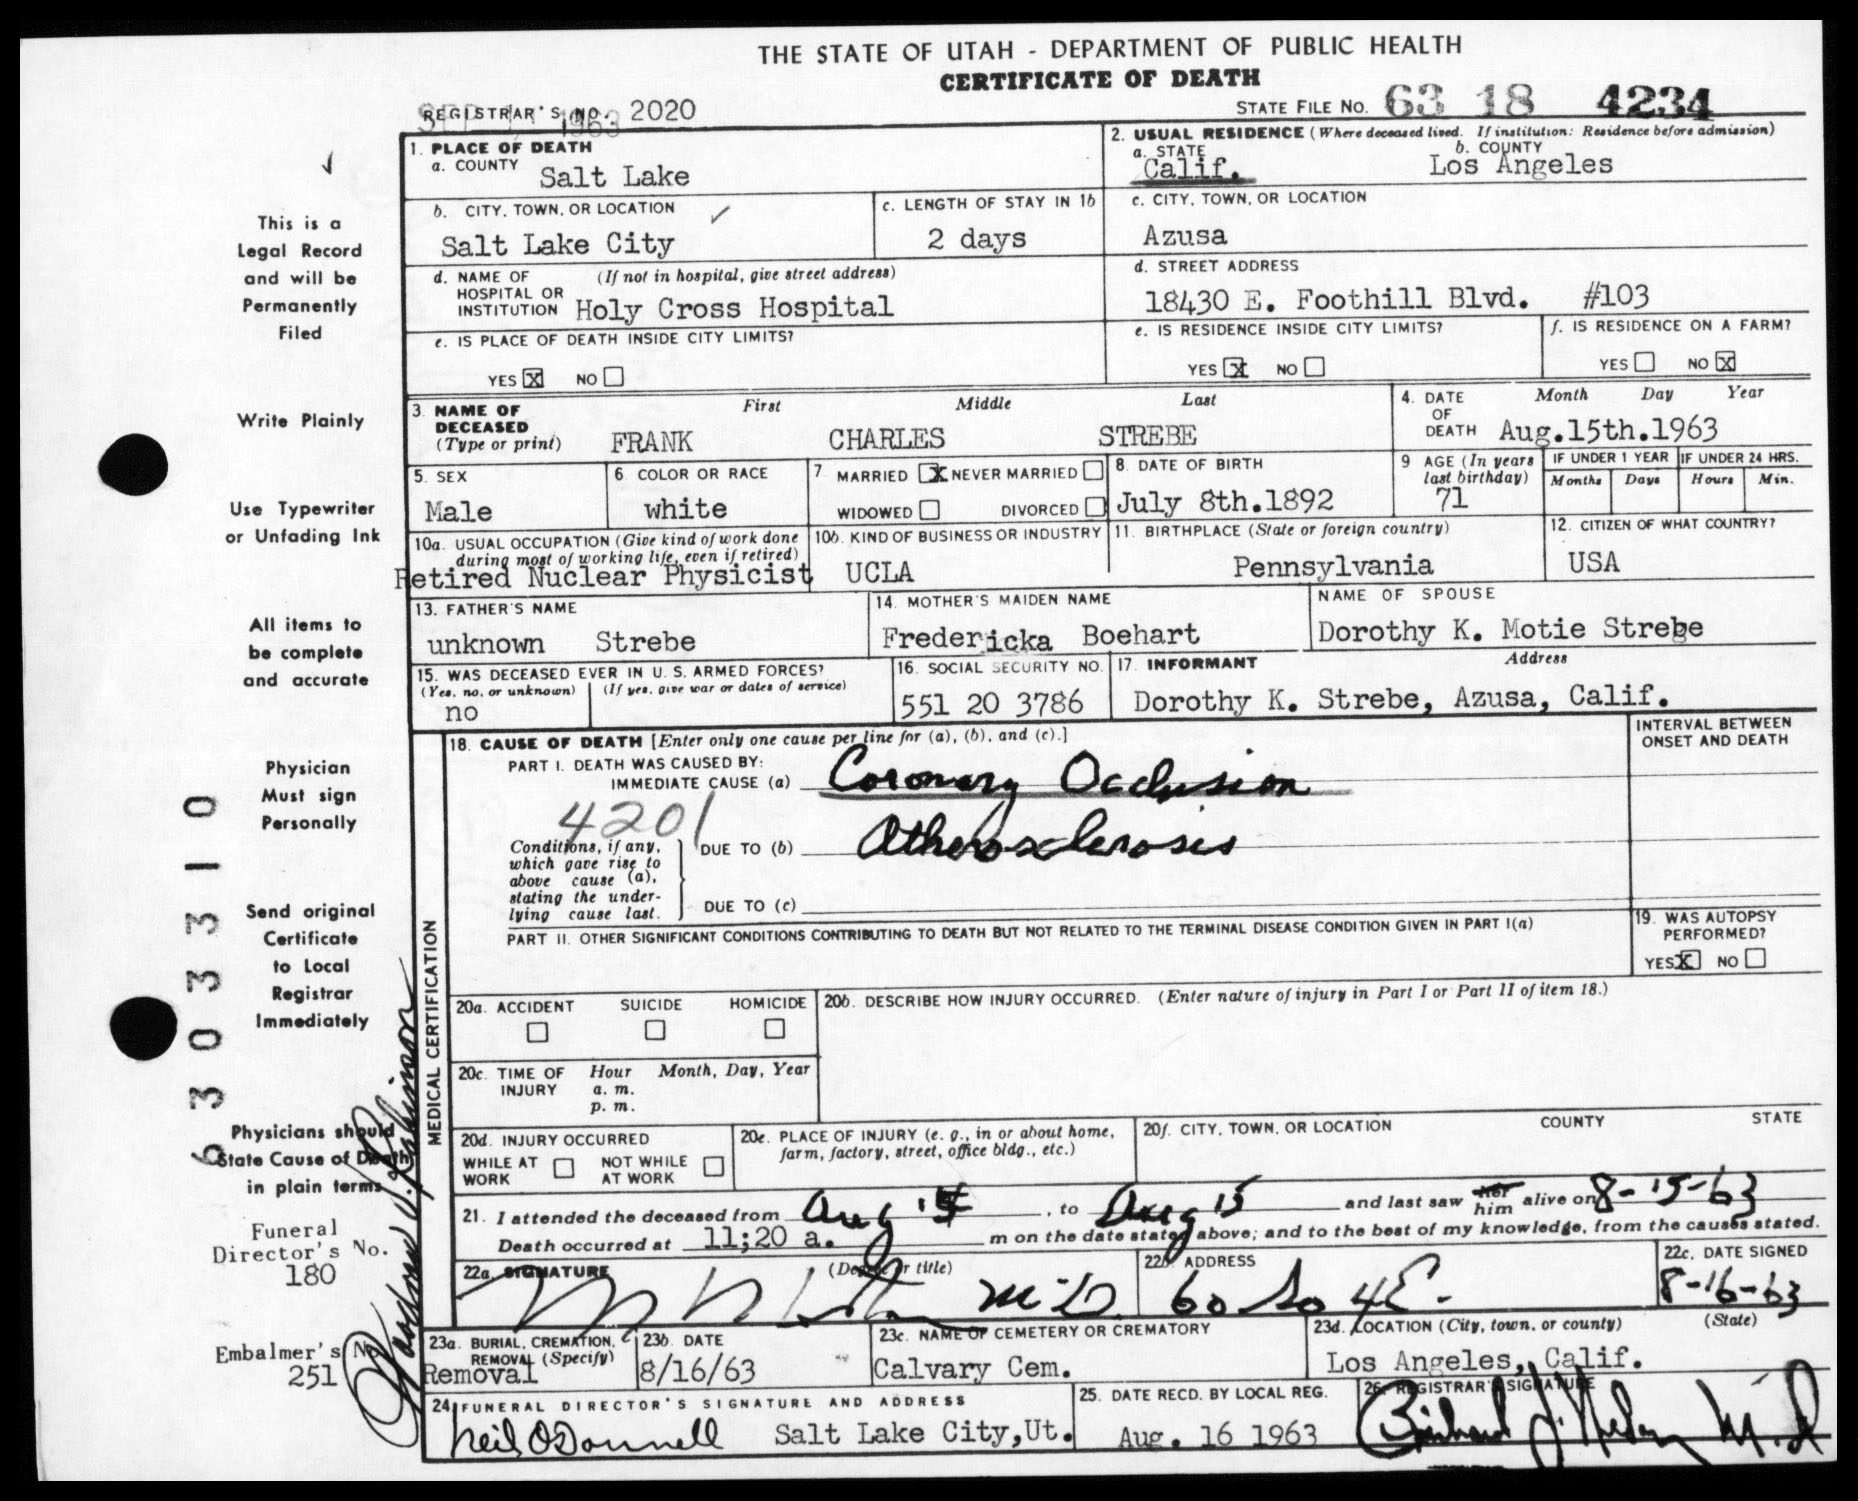 THE STATE OF UTAH - DEPARTMENT OF PUBLIC HEALTH
CERTIFICATE OF DEATH
REGISTRAR'S NO. 2020
STATE FILE NO. 63 18 4234
SEP 1963
1. PLACE OF DEATH
a. COUNTY Salt Lake
2. USUAL RESIDENCE (Where deceased lived. If institution: Residence before admission)
a. STATE Calif.
b. COUNTY Los Angeles
b. CITY, TOWN, OR LOCATION
Salt Lake City
c. LENGTH OF STAY IN 1b
2 days
c. CITY, TOWN, OR LOCATION
Azusa
d. NAME OF HOSPITAL OR INSTITUTION (If not in hospital, give street address)
Holy Cross Hospital
d. STREET ADDRESS
18430 E. Foothill Blvd. #103
e. IS PLACE OF DEATH INSIDE CITY LIMITS?
YES X NO
e. IS RESIDENCE INSIDE CITY LIMITS?
YES X NO
f. IS RESIDENCE ON A FARM?
YES NO X
3. NAME OF DECEASED (Type or print)
First Middle Last
FRANK CHARLES STREBE
4. DATE OF DEATH Month Day Year
Aug.15th.1963
5. SEX
Male
6. COLOR OR RACE
white
7. MARRIED X NEVER MARRIED
WIDOWED DIVORCED
8. DATE OF BIRTH
July 8th.1892
9 AGE (In years last birthday)
71
IF UNDER 1 YEAR
Months Days
IF UNDER 24 HRS.
Hours Min.
10a. USUAL OCCUPATION (Give kind of work done during most of working life, even if retired)
Retired Nuclear Physicist
10b. KIND OF BUSINESS OR INDUSTRY
UCLA
11. BIRTHPLACE (State or foreign country)
Pennsylvania
12. CITIZEN OF WHAT COUNTRY?
USA
13. FATHER'S NAME
unknown Strebe
14. MOTHER'S MAIDEN NAME
Fredericka Boehart
NAME OF SPOUSE
Dorothy K. Motie Strebe
15. WAS DECEASED EVER IN U. S. ARMED FORCES?
(Yes, no, or unknown) (If yes, give war or dates of service)
no
16. SOCIAL SECURITY NO.
551 20 3786
17. INFORMANT Address
Dorothy K. Strebe, Azusa, Calif.
MEDICAL CERTIFICATION
18. CAUSE OF DEATH [Enter only one cause per line for (a), (b), and (c).]
INTERVAL BETWEEN ONSET AND DEATH
PART I. DEATH WAS CAUSED BY:
IMMEDIATE CAUSE (a) Coronary Occlusion
4201
Conditions, if any, which gave rise to above cause (a), stating the underlying cause last.
DUE TO (b) Atherosclerosis
DUE TO (c)
PART II. OTHER SIGNIFICANT CONDITIONS CONTRIBUTING TO DEATH BUT NOT RELATED TO THE TERMINAL DISEASE CONDITION GIVEN IN PART I(a)
19. WAS AUTOPSY PERFORMED?
YES X NO
20a. ACCIDENT SUICIDE HOMICIDE
20b. DESCRIBE HOW INJURY OCCURRED. (Enter nature of injury in Part I or Part II of item 18.)
20c. TIME OF INJURY Hour Month, Day, Year
a. m.
p. m.
20d. INJURY OCCURRED
WHILE AT WORK NOT WHILE AT WORK
20e. PLACE OF INJURY (e. g., in or about home, farm, factory, street, office bldg., etc.)
20f. CITY, TOWN, OR LOCATION COUNTY STATE
21. I attended the deceased from Aug 15, to Aug 15 and last saw her him alive on 8-15-63
Death occurred at 11;20 a. m on the date stated above; and to the best of my knowledge, from the causes stated.
22a. SIGNATURE (Degree or title)
M.D.
22b. ADDRESS
60 So 4 E.
22c. DATE SIGNED
8-16-63
23a. BURIAL, CREMATION, REMOVAL (Specify)
Removal
23b. DATE
8/16/63
23c. NAME OF CEMETERY OR CREMATORY
Calvary Cem.
23d. LOCATION (City, town, or county) (State)
Los Angeles, Calif.
24. FUNERAL DIRECTOR'S SIGNATURE AND ADDRESS
Neil O'Donnell Salt Lake City,Ut.
25. DATE RECD. BY LOCAL REG.
Aug. 16 1963
26. REGISTRAR'S SIGNATURE
This is a
Legal Record
and will be
Permanently
Filed
Write Plainly
Use Typewriter
or Unfading Ink
All items to
be complete
and accurate
Physician
Must sign
Personally
Send original
Certificate
to Local
Registrar
Immediately
Physicians should
State Cause of Death
in plain terms
Funeral
Director's No.
180
Embalmer's No
251
6303310